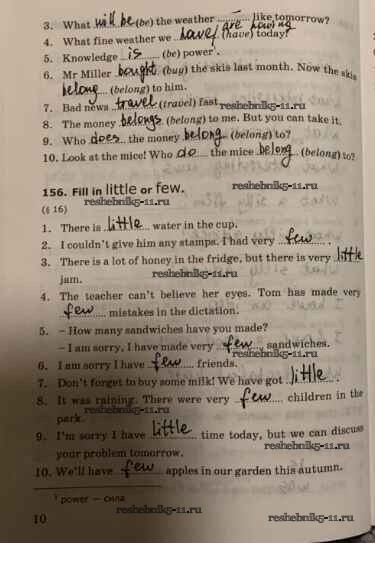 3. What will be (be) the weather — like tomorrow?
4. What fine weather we have are having (have) today!
5. Knowledge is (be) power¹.
6. Mr Miller bought (buy) the skis last month. Now the skis
belong (belong) to him.
7. Bad news travel (travel) fast.
reshebnik5-11.ru
8. The money belongs (belong) to me. But you can take it.
9. Who does the money belong (belong) to?
10. Look at the mice! Who do the mice belong (belong) to?
156. Fill in little or few.
reshebnik5-11.ru
(§ 16)
reshebnik5-11.ru
1. There is little water in the cup.
2. I couldn't give him any stamps. I had very few.
3. There is a lot of honey in the fridge, but there is very little
jam.
reshebnik5-11.ru
4. The teacher can't believe her eyes. Tom has made very
few mistakes in the dictation.
5. – How many sandwiches have you made?
– I am sorry, I have made very few sandwiches.
reshebnik5-11.ru
6. I am sorry I have few friends.
reshebnik5-11.ru
7. Don't forget to buy some milk! We have got little.
8. It was raining. There were very few children in the
park.
reshebnik5-11.ru
9. I'm sorry I have little time today, but we can discuss
your problem tomorrow.
reshebnik5-11.ru
10. We'll have few apples in our garden this autumn.
¹ power — сила
10
reshebnik5-11.ru
reshebnik5-11.ru